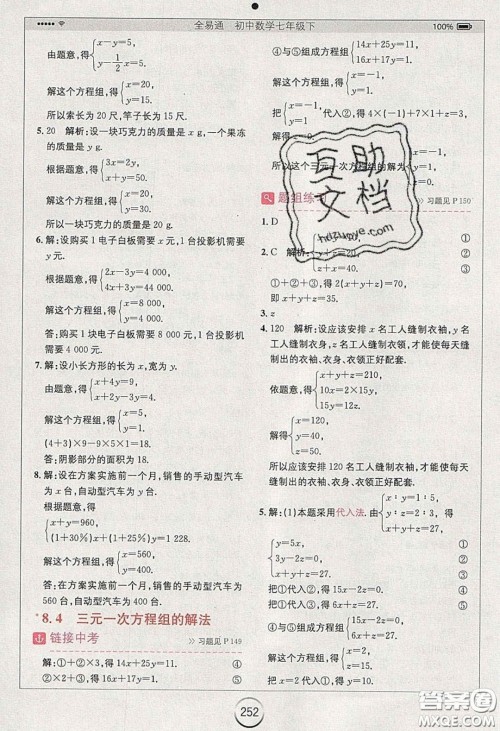 全易通 初中数学七年级下
100%
由题意,得{x-y=5, y-1/2x=5.
解这个方程组,得{x=20, y=15.
所以索长为20尺,竿子长为15尺.
5. 20 解析:设一块巧克力的质量是x g,一个果冻
的质量是y g.
根据题意,得{3x=2y, x+y=50.
解这个方程组,得{x=20, y=30.
所以一块巧克力的质量是20 g.
6. 解:设购买1块电子白板需要x元,1台投影机需
要y元.
根据题意,得{2x-3y=4 000, 4x+3y=44 000.
解这个方程组,得{x=8 000, y=4 000.
答:购买1块电子白板需要8 000元,1台投影机
需要4 000元.
7. 解:设小长方形的长为x,宽为y.
根据题意,得{x+4y=9, x-2y=3.
解这个方程组,得{x=5, y=1.
(4+3)×9-9×5×1=18.
答:阴影部分的面积为18.
8. 解:设在方案实施前一个月,销售的手动型汽车
为x台,自动型汽车为y台.
根据题意,得
{x+y=960, (1+30%)x+(1+25%)y=1 228.
解这个方程组,得{x=560, y=400.
答:在方案实施前一个月,销售的手动型汽车为
560台,自动型汽车为400台.
*8.4 三元一次方程组的解法
链接中考
>>习题见 P 149
1. 解:①+②×3,得14x+25y=11. ④
②×2+③,得6x+17y=11. ⑤
④与⑤组成方程组{14x+25y=11, 6x+17y=11.
解这个方程组,得{x=-1, y=1.
把{x=-1, y=1.代入②,得4×(-1)+7×1+z=3.
解得z=0.
所以这个三元一次方程组的解为
互助文档
hdzuoye.com
题组练
>>习题见 P 150
1. D
2. C 解析: ① y+z=20, ② z+x=40. ③
①+②+③,得2(x+y+z)=70.
3. z
4. 120 解析:设应该安排x名工人缝制衣袖,y名
工人缝制衣身,z名工人缝制衣领,才能使每天缝
制出的衣袖、衣身、衣领正好配套.
依题意,得{x+y+z=210, 10x=30y, 15y=12z.
解得{x=120, y=40, z=50.
所以应该安排120名工人缝制衣袖,才能使每天
缝制出的衣袖、衣身、衣领正好配套.
5. 解:(1)本题采用代入法.由{x:y=1:5, y:z=2:3, x+y+z=27,
得
{y=5x, ① 3y-2z=0, ② x+y+z=27. ③
把①代入②,得15x-2z=0. ④
把①代入③,得6x+z=27. ⑤
④与⑤组成方程组{15x-2z=0, 6x+z=27.
252